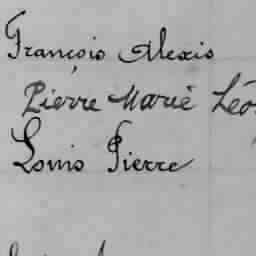 François Alexis
Pierre Marie Léo
Louis Pierre